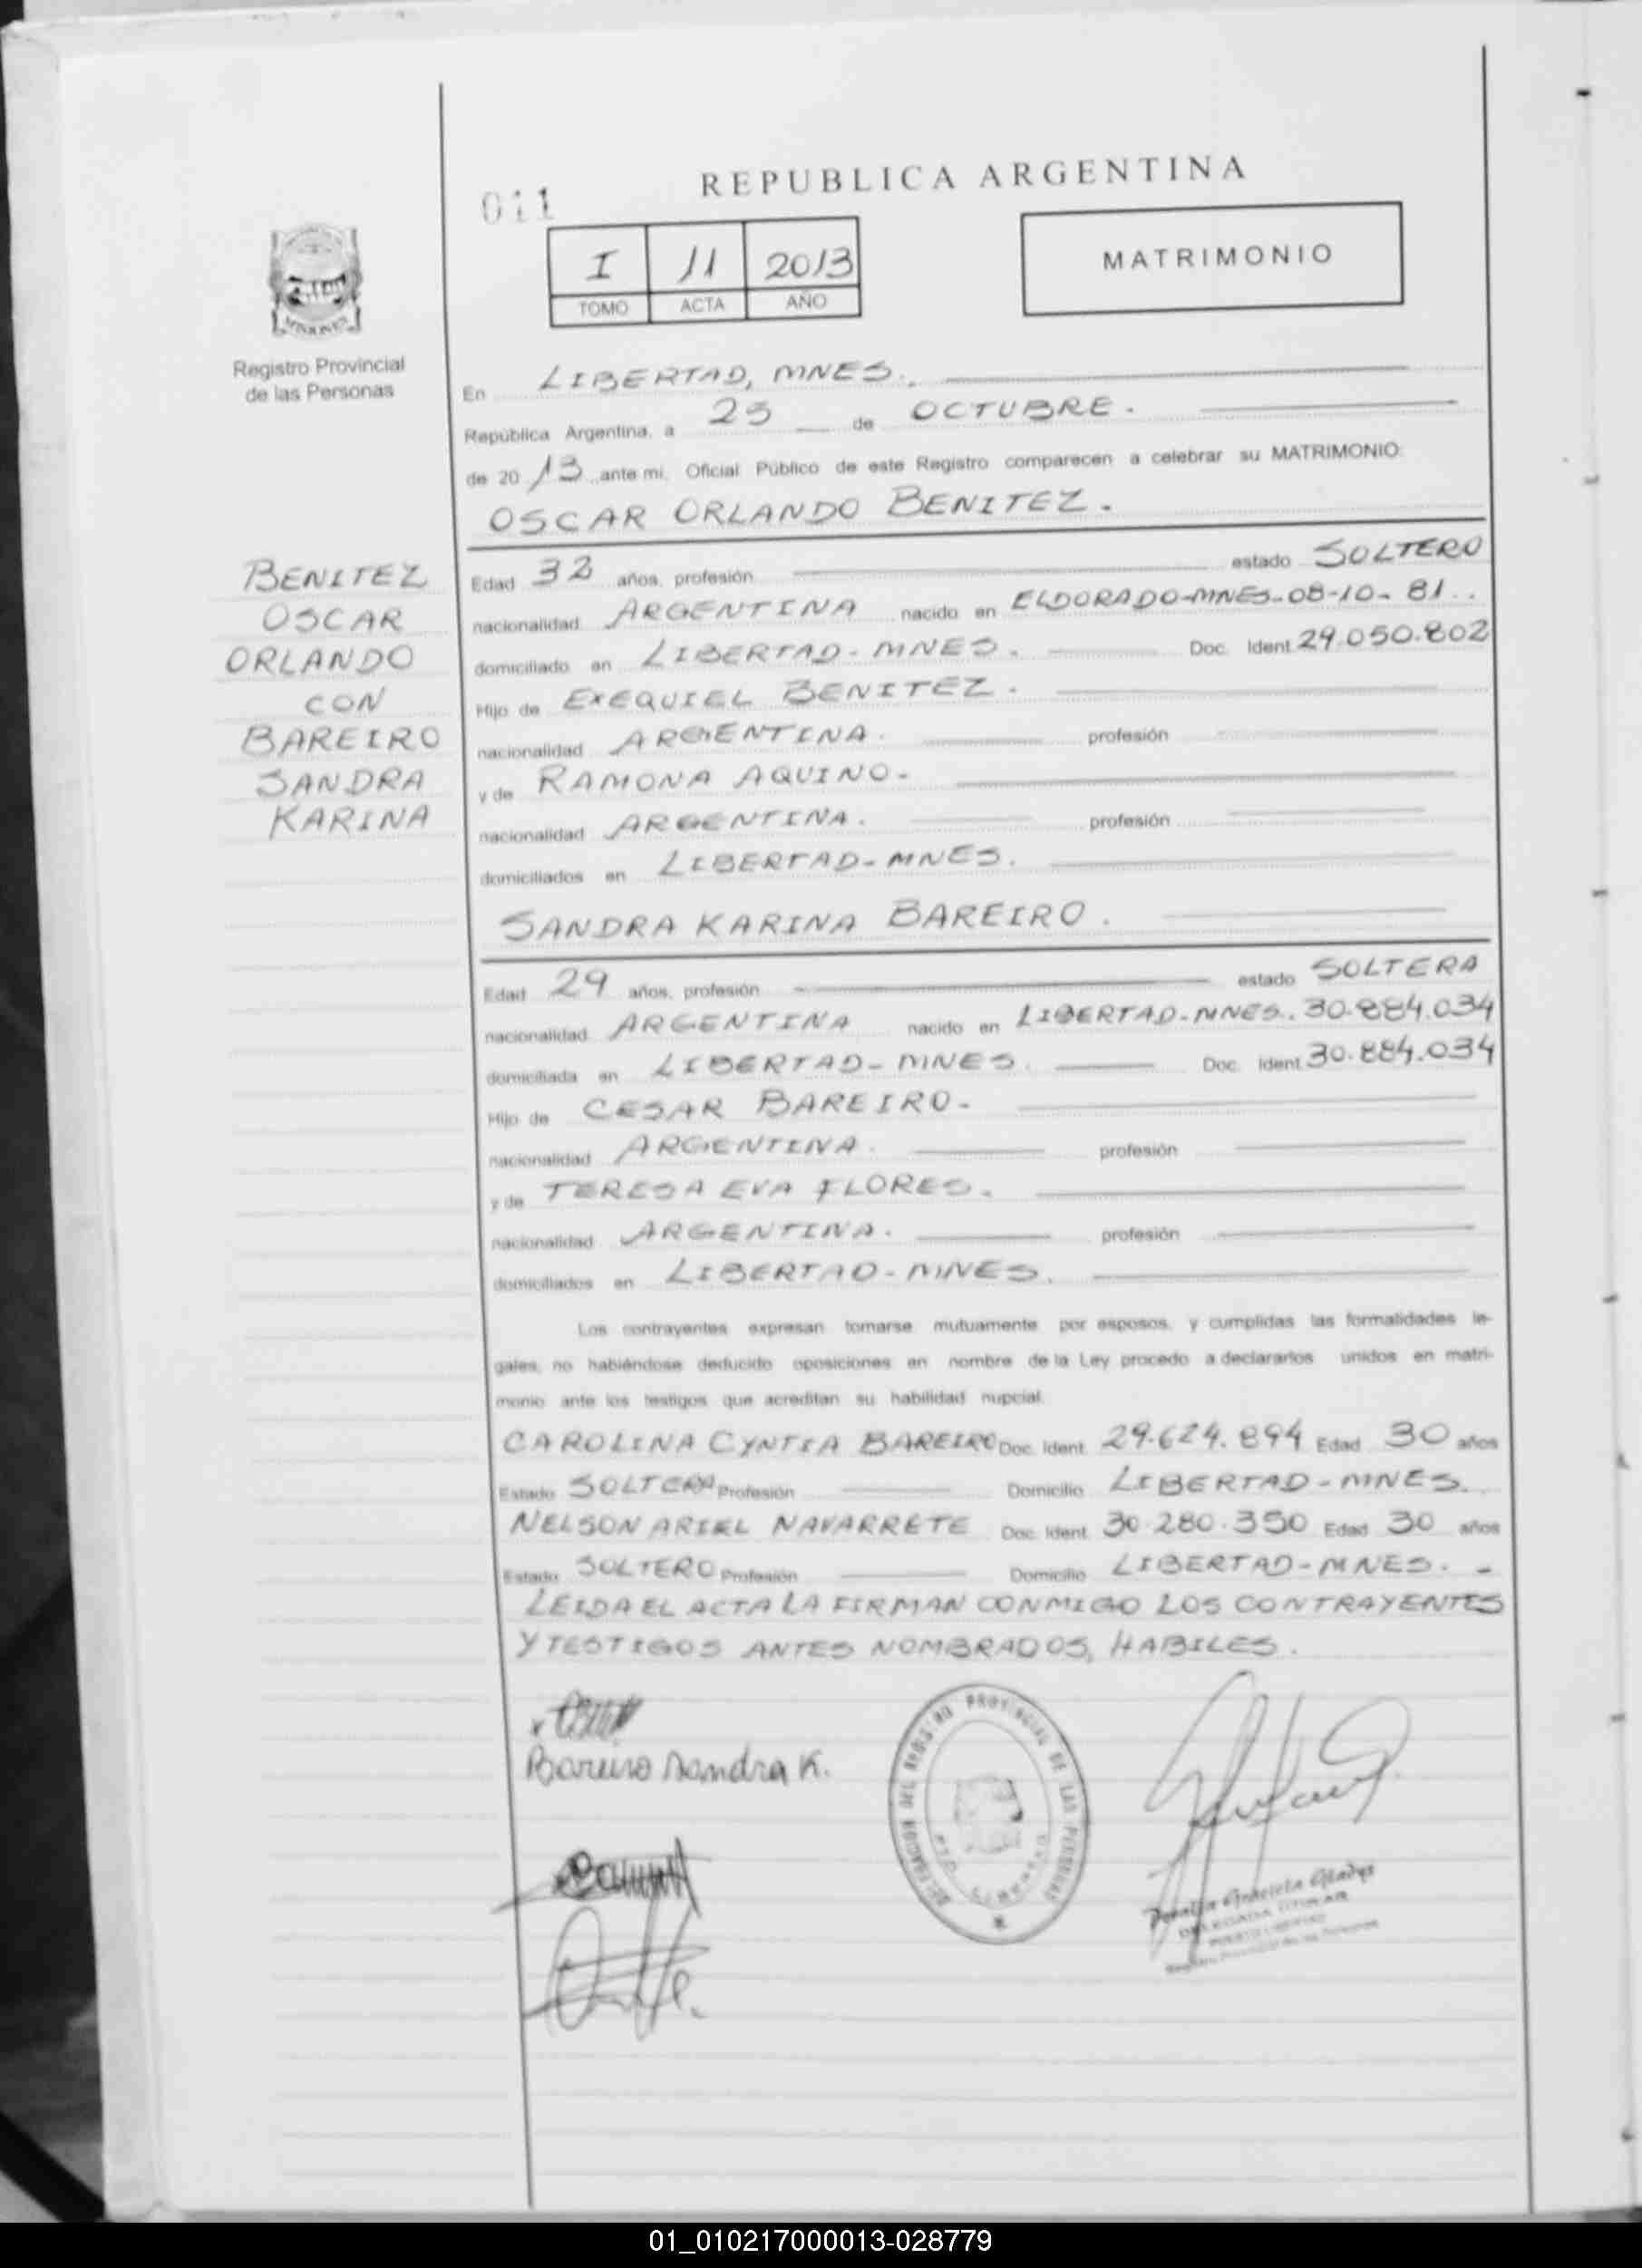 REPUBLICA ARGENTINA
011
I 11 2013
TOMO ACTA AÑO
MATRIMONIO
MISIONES
Registro Provincial
de las Personas
En LIBERTAD, MNES.
República Argentina, a 25 de OCTUBRE.
de 20 13 ante mi, Oficial Público de este Registro comparecen a celebrar su MATRIMONIO:
OSCAR ORLANDO BENITEZ.
BENITEZ
OSCAR
ORLANDO
CON
BAREIRO
SANDRA
KARINA
Edad 32 años, profesión estado SOLTERO
nacionalidad ARGENTINA nacido en ELDORADO-MNES-08-10-81..
domiciliado en LIBERTAD-MNES. Doc. Ident. 29.050.802
Hijo de EXEQUIEL BENITEZ.
nacionalidad ARGENTINA. profesión
y de RAMONA AQUINO.
nacionalidad ARGENTINA. profesión
domiciliados en LIBERTAD-MNES.
SANDRA KARINA BAREIRO.
Edad 29 años, profesión estado SOLTERA
nacionalidad ARGENTINA nacido en LIBERTAD-MNES. 30.884.034
domiciliada en LIBERTAD-MNES. Doc. Ident. 30.884.034
Hijo de CESAR BAREIRO.
nacionalidad ARGENTINA. profesión
y de TERESA EVA FLORES.
nacionalidad ARGENTINA. profesión
domiciliados en LIBERTAD-MNES.
Los contrayentes expresan tomarse mutuamente por esposos, y cumplidas las formalidades le-
gales, no habiéndose deducido oposiciones en nombre de la Ley procedo a declararlos unidos en matri-
monio ante los testigos que acreditan su habilidad nupcial.
CAROLINA CYNTIA BAREIRO Doc. Ident. 29.624.894 Edad 30 años
Estado SOLTERA Profesión Domicilio LIBERTAD-MNES.
NELSON ARIEL NAVARRETE Doc. Ident. 30.280.350 Edad 30 años
Estado SOLTERO Profesión Domicilio LIBERTAD-MNES.-
LEIDA EL ACTA LA FIRMAN CONMIGO LOS CONTRAYENTES
Y TESTIGOS ANTES NOMBRADOS, HABILES.
Bareiro Sandra K.
DELEGACION DEL REGISTRO PROVINCIAL DE LAS PERSONAS
PTO. LIBERTAD
Graciela Gladys
DELEGADA TITULAR
01_010217000013-028779